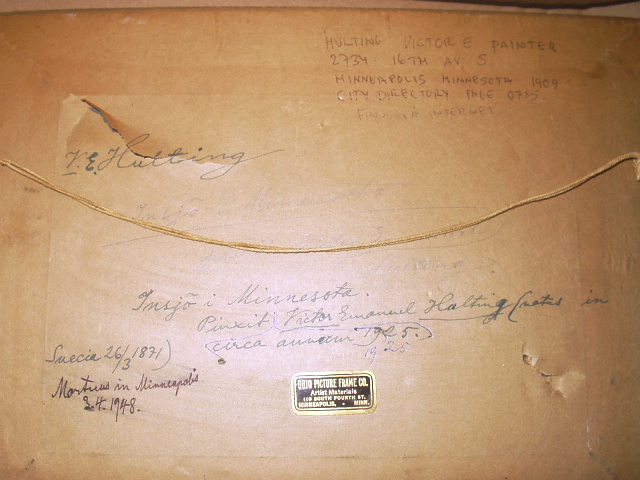 HULTING VICTOR E PAINTER
2734 16TH AV. S.
MINNEAPOLIS MINNESOTA 1909
CITY DIRECTORY PAGE 0755
INTERNET
V. E. Hulting
Insjö i Minnesota
Insjö i Minnesota.
Pinxit (Victor Emanuel Hulting (natus in
Suecia 26/3 1871)
(circa annum 1925.)
1925
Mortuus in Minneapolis
3.4.1948.
OHIO PICTURE FRAME CO.
Artist Materials
SOUTH FOURTH ST.
MINNEAPOLIS, - MINN.